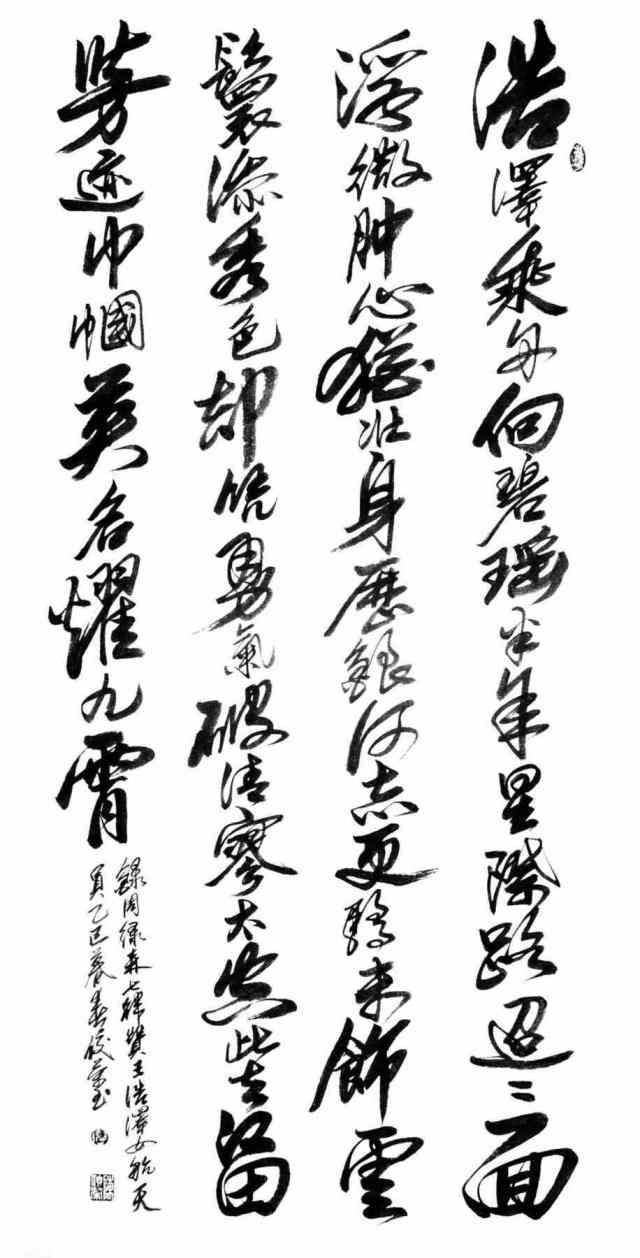 浩澤乘舟向碧瑶半年星際路迢〻面
浮微肿心猶壯身歷銀河志更驕未飾雲
鬟添秀色却凭勇氣破清寥太空此去留
芳迹巾幗英名耀九霄
錄周绿森七律贊王浩澤女航天
員乙巳暮春